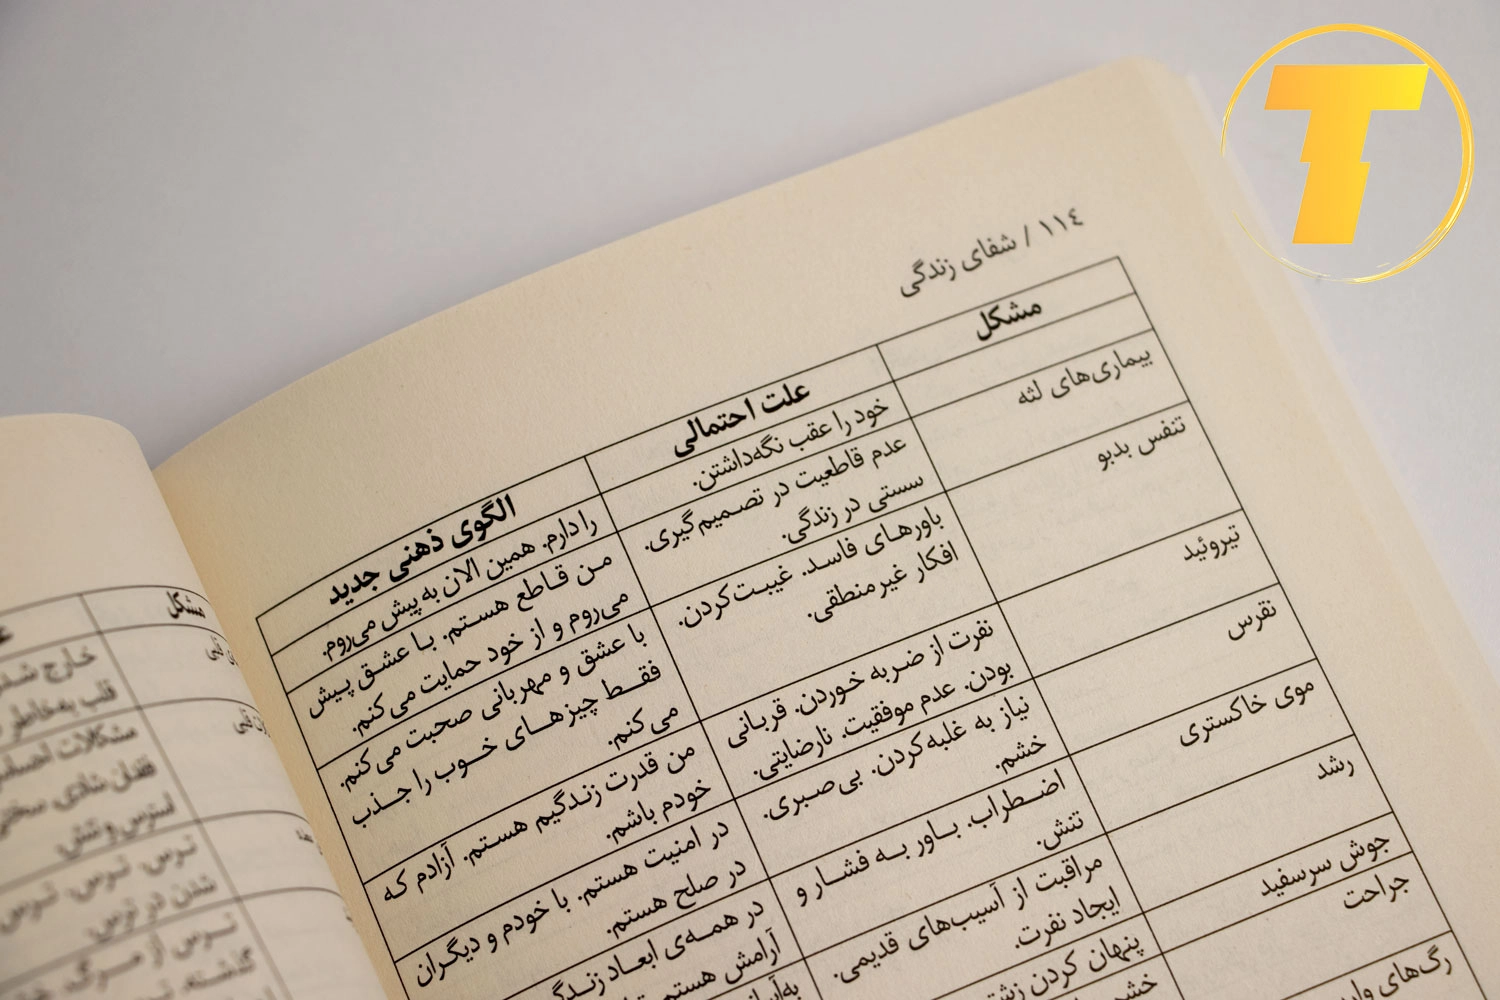 T
١١٤ / شفای زندگی
مشکل
علت احتمالی
الگوی ذهنی جدید
خود را عقب نگه‌داشتن.
را دارم. همین الان به پیش می‌روم.
بیماری‌های لثه
عدم قاطعیت در تصمیم‌گیری.
سستی در زندگی.
من قاطع هستم. با عشق پیش
می‌روم و از خود حمایت می‌کنم.
تنفس بدبو
باورهای فاسد. غیبت‌کردن.
افکار غیر منطقی.
با عشق و مهربانی صحبت می‌کنم.
فقط چیزهای خوب را جذب
می کنم.
تیروئید
نفرت از ضربه خوردن. قربانی
بودن. عدم موفقیت. نارضایتی.
من قدرت زندگیم هستم. آزادم که
خودم باشم.
نقرس
نیاز به غلبه‌کردن. بی‌صبری.
خشم.
در امنیت هستم. با خودم و دیگران
در صلح هستم.
موی خاکستری
اضطراب. باور به فشار و
تنش.
در همه‌ی ابعاد
آرامش هستم.
رشد
مراقبت از آسیب‌های قدیمی.
ایجاد نفرت.
جوش سرسفید
پنهان کردن
جراحت
رگ‌های
مشکل
خارج
قلب به‌خاطر
مشکلات
فقدان شادی. سختی
استرس و تنش.
ترس. ترس. ترس
شدن در ترس.
ترس از مرگ.
گذشته.